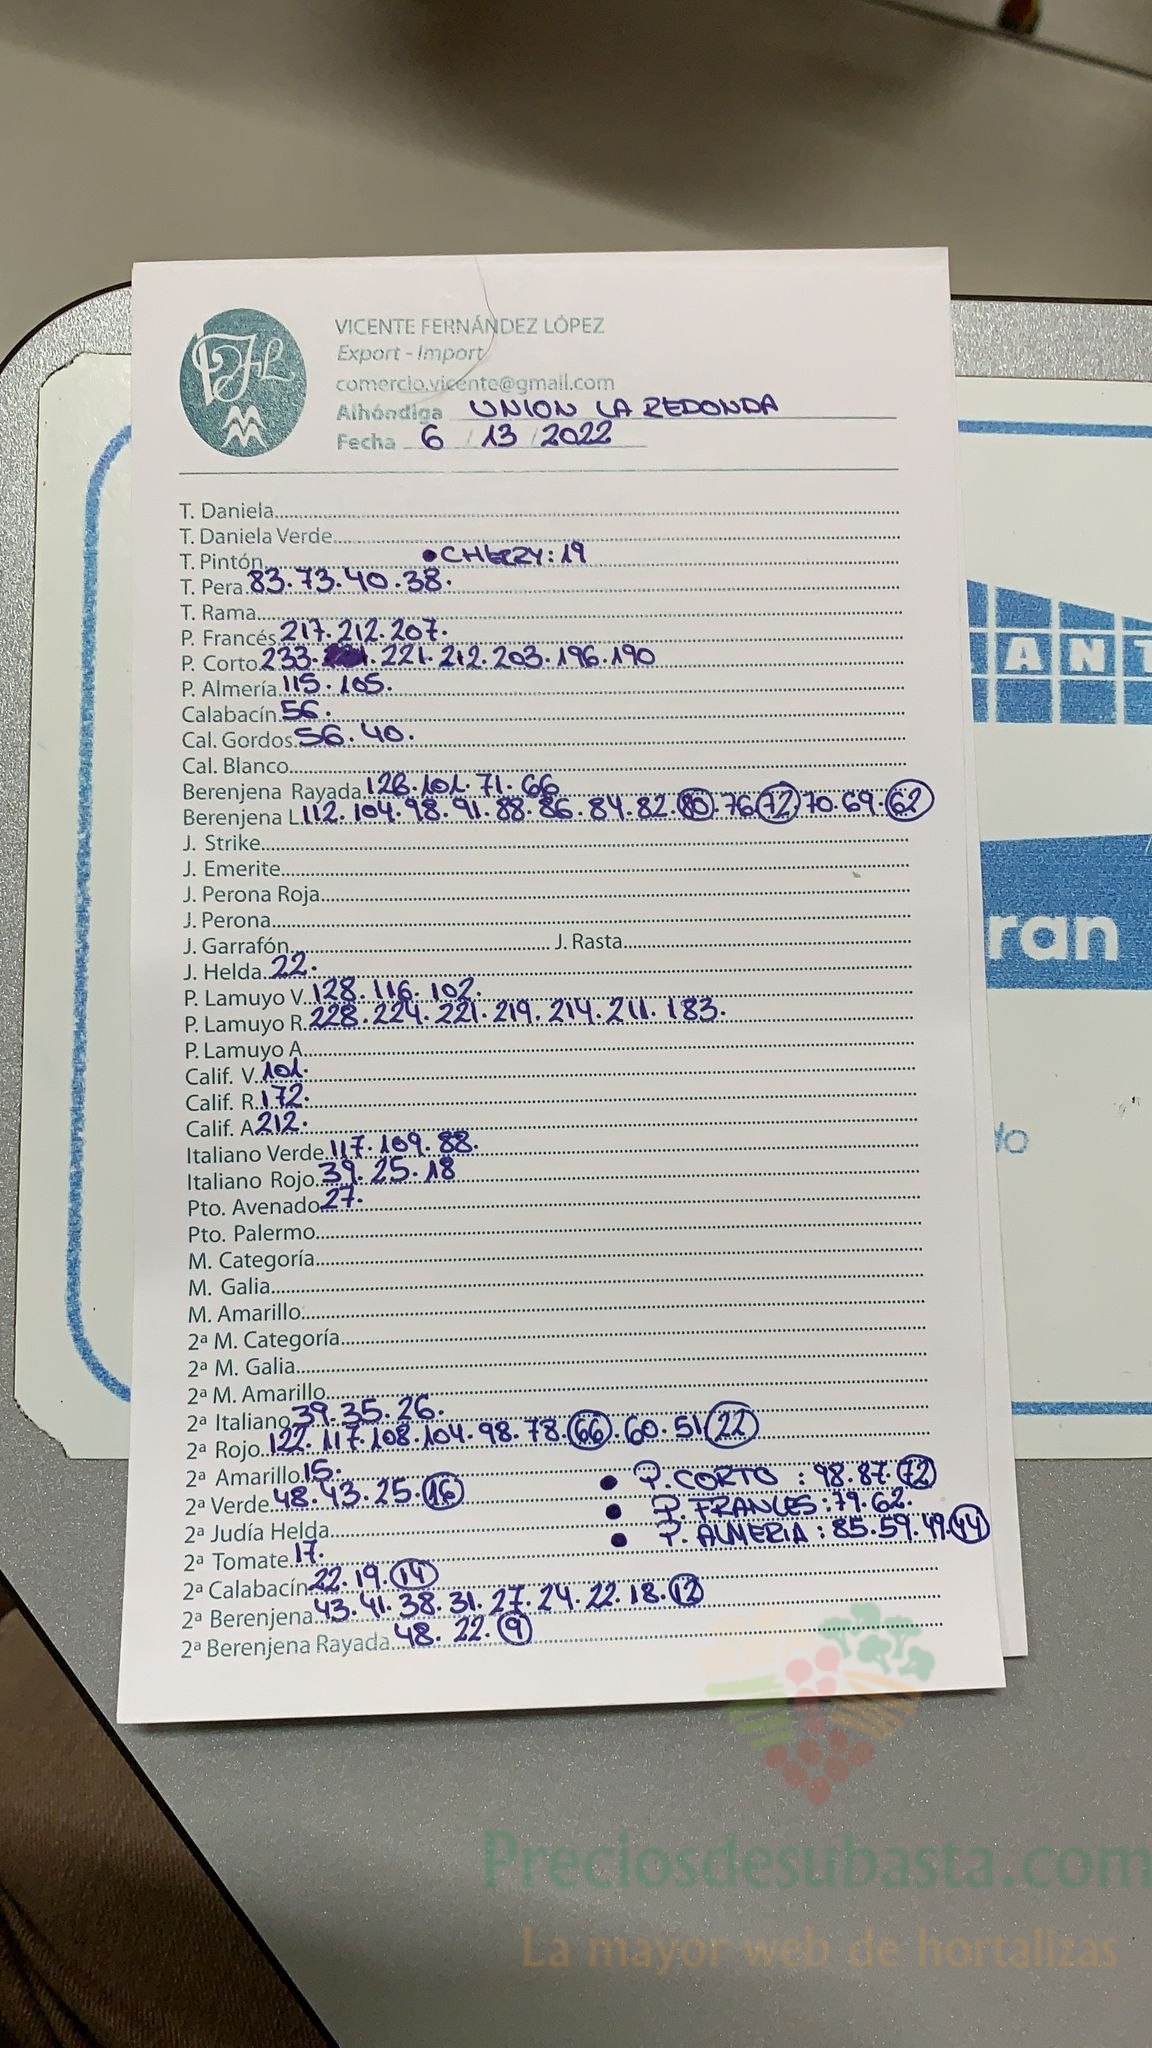 VICENTE FERNÁNDEZ LÓPEZ
Export - Import
comercio.vicente@gmail.com
Alhóndiga UNION LA REDONDA
Fecha 6 / 13 / 2022
T. Daniela
T. Daniela Verde
T. Pintón • CHERRY: 19
T. Pera 83. 73. 40. 38.
T. Rama
P. Francés 217. 212. 207.
P. Corto 233. 221. 212. 203. 196. 190
P. Almería 115. 105.
Calabacín 56.
Cal. Gordos 56. 40.
Cal. Blanco
Berenjena Rayada 128. 101. 71. 66
Berenjena L 112. 104. 98. 91. 88. 86. 84. 82. 80. 76 72 70. 69. 62
J. Strike
J. Emerite
J. Perona Roja
J. Perona
J. Garrafón J. Rasta
J. Helda 22.
P. Lamuyo V. 128. 116. 102.
P. Lamuyo R. 228. 224. 221. 219. 214. 211. 183.
P. Lamuyo A
Calif. V. 101.
Calif. R. 172.
Calif. A 212.
Italiano Verde 117. 109. 88.
Italiano Rojo 39. 25. 18
Pto. Avenado 27.
Pto. Palermo
M. Categoría
M. Galia
M. Amarillo
2ª M. Categoría
2ª M. Galia
2ª M. Amarillo
2ª Italiano 39. 35. 26.
2ª Rojo 122. 117. 108. 104. 98. 78. 66. 60. 51 22
2ª Amarillo 15. • P. CORTO : 98. 87. 72
2ª Verde 48. 43. 25. 16 • P. FRANCES : 79. 62.
2ª Judía Helda • P. ALMERIA : 85. 59. 49. 44
2ª Tomate 17.
2ª Calabacín 22. 19. 14
2ª Berenjena 43. 41. 38. 31. 27. 24. 22. 18. 12
2ª Berenjena Rayada 48. 22. 9
ANT
ran
Preciosdesubasta.com
La mayor web de hortalizas